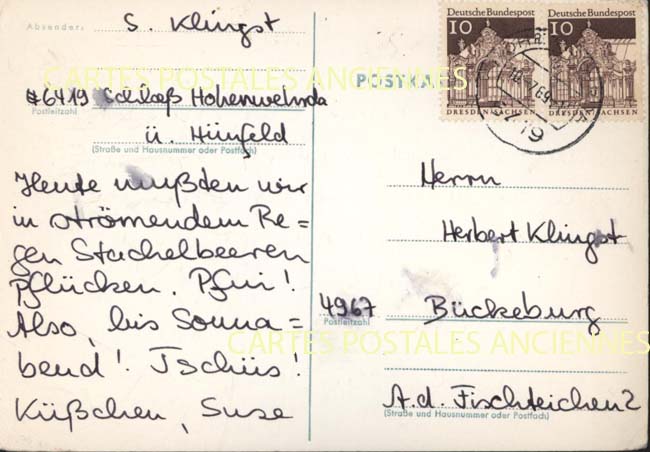 Absender:
S. Klingst
#6419 Schloß Hohenwehrda
Postleitzahl
ü. Hünfeld
(Straße und Hausnummer oder Postfach)
Heute mußten wir
in strömendem Re=
gen Stachelbeeren
pflücken. Pfui!
Also, bis Sonna=
bend! Tschüs!
Küßchen, Suse
POSTKA
Deutsche Bundespost
10
DRESDEN/SACHSEN
Deutsche Bundespost
10
DRESDEN/SACHSEN
Herrn
Herbert Klingst
4967 Bückeburg
Postleitzahl
A.d. Fischteichen 2
(Straße und Hausnummer oder Postfach)
CARTES POSTALES ANCIENNES
CARTES POSTALES ANCIENNES